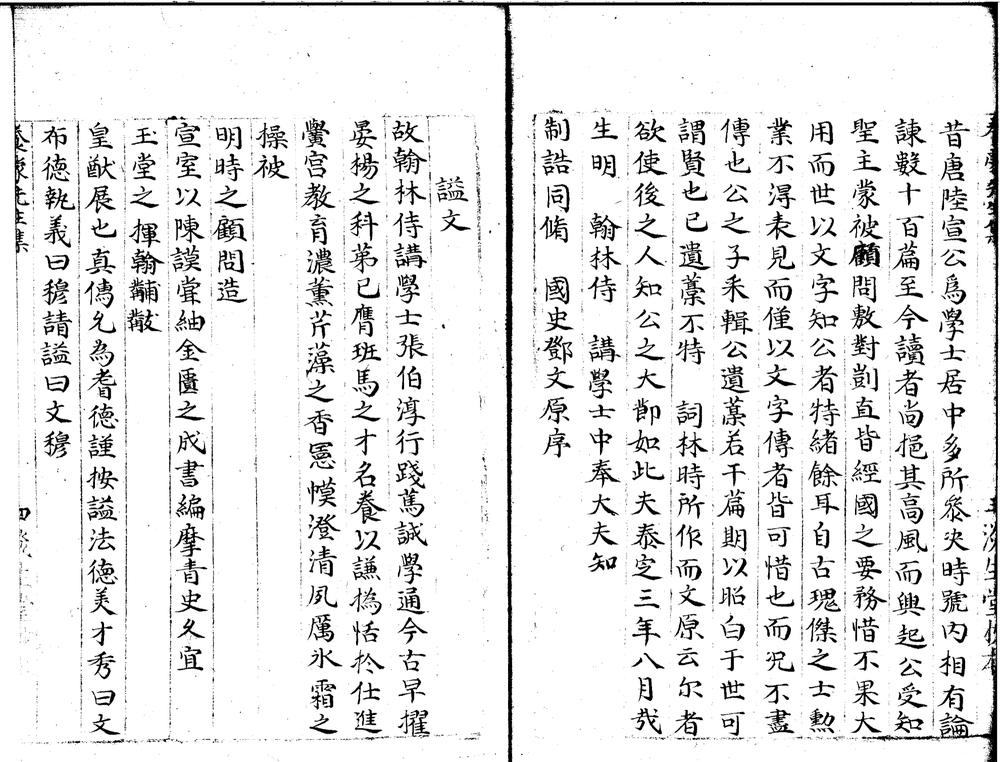 昔唐陸宣公爲學士居中多所叅决時號内相有論
諫數十百篇至今讀者尚挹其高風而興起公受知
聖主蒙被顧問敷對剴直皆經國之要務惜不果大
用而世以文字知公者特緒餘耳自古瑰傑之士勲
業不淂表見而僅以文字傳者皆可惜也而况不盡
傳也公之子采輯公遺藁若干篇期以昭白于世可
謂賢也已遺藁不特 詞林時所作而文原云尔者
欲使後之人知公之大節如此夫泰定三年八月㦲
生明 翰林侍 講學士中奉大夫知
制誥同脩 國史鄧文原序
謚文
故翰林侍講學士張伯淳行踐篤誠學通今古早擢
晏楊之科苐已膺班馬之才名養以謙撝恬於仕進
黌宫教育濃薰芹藻之香憲幙澄清夙厲氷霜之
操被
明時之顧問造
宣室以陳謨甞紬金匱之成書編摩青史久宜
玉堂之揮翰黼黻
皇猷展也真儒允為耆德謹按謚法德美才秀曰文
布德執義曰穆請謚曰文穆
養蒙先生集